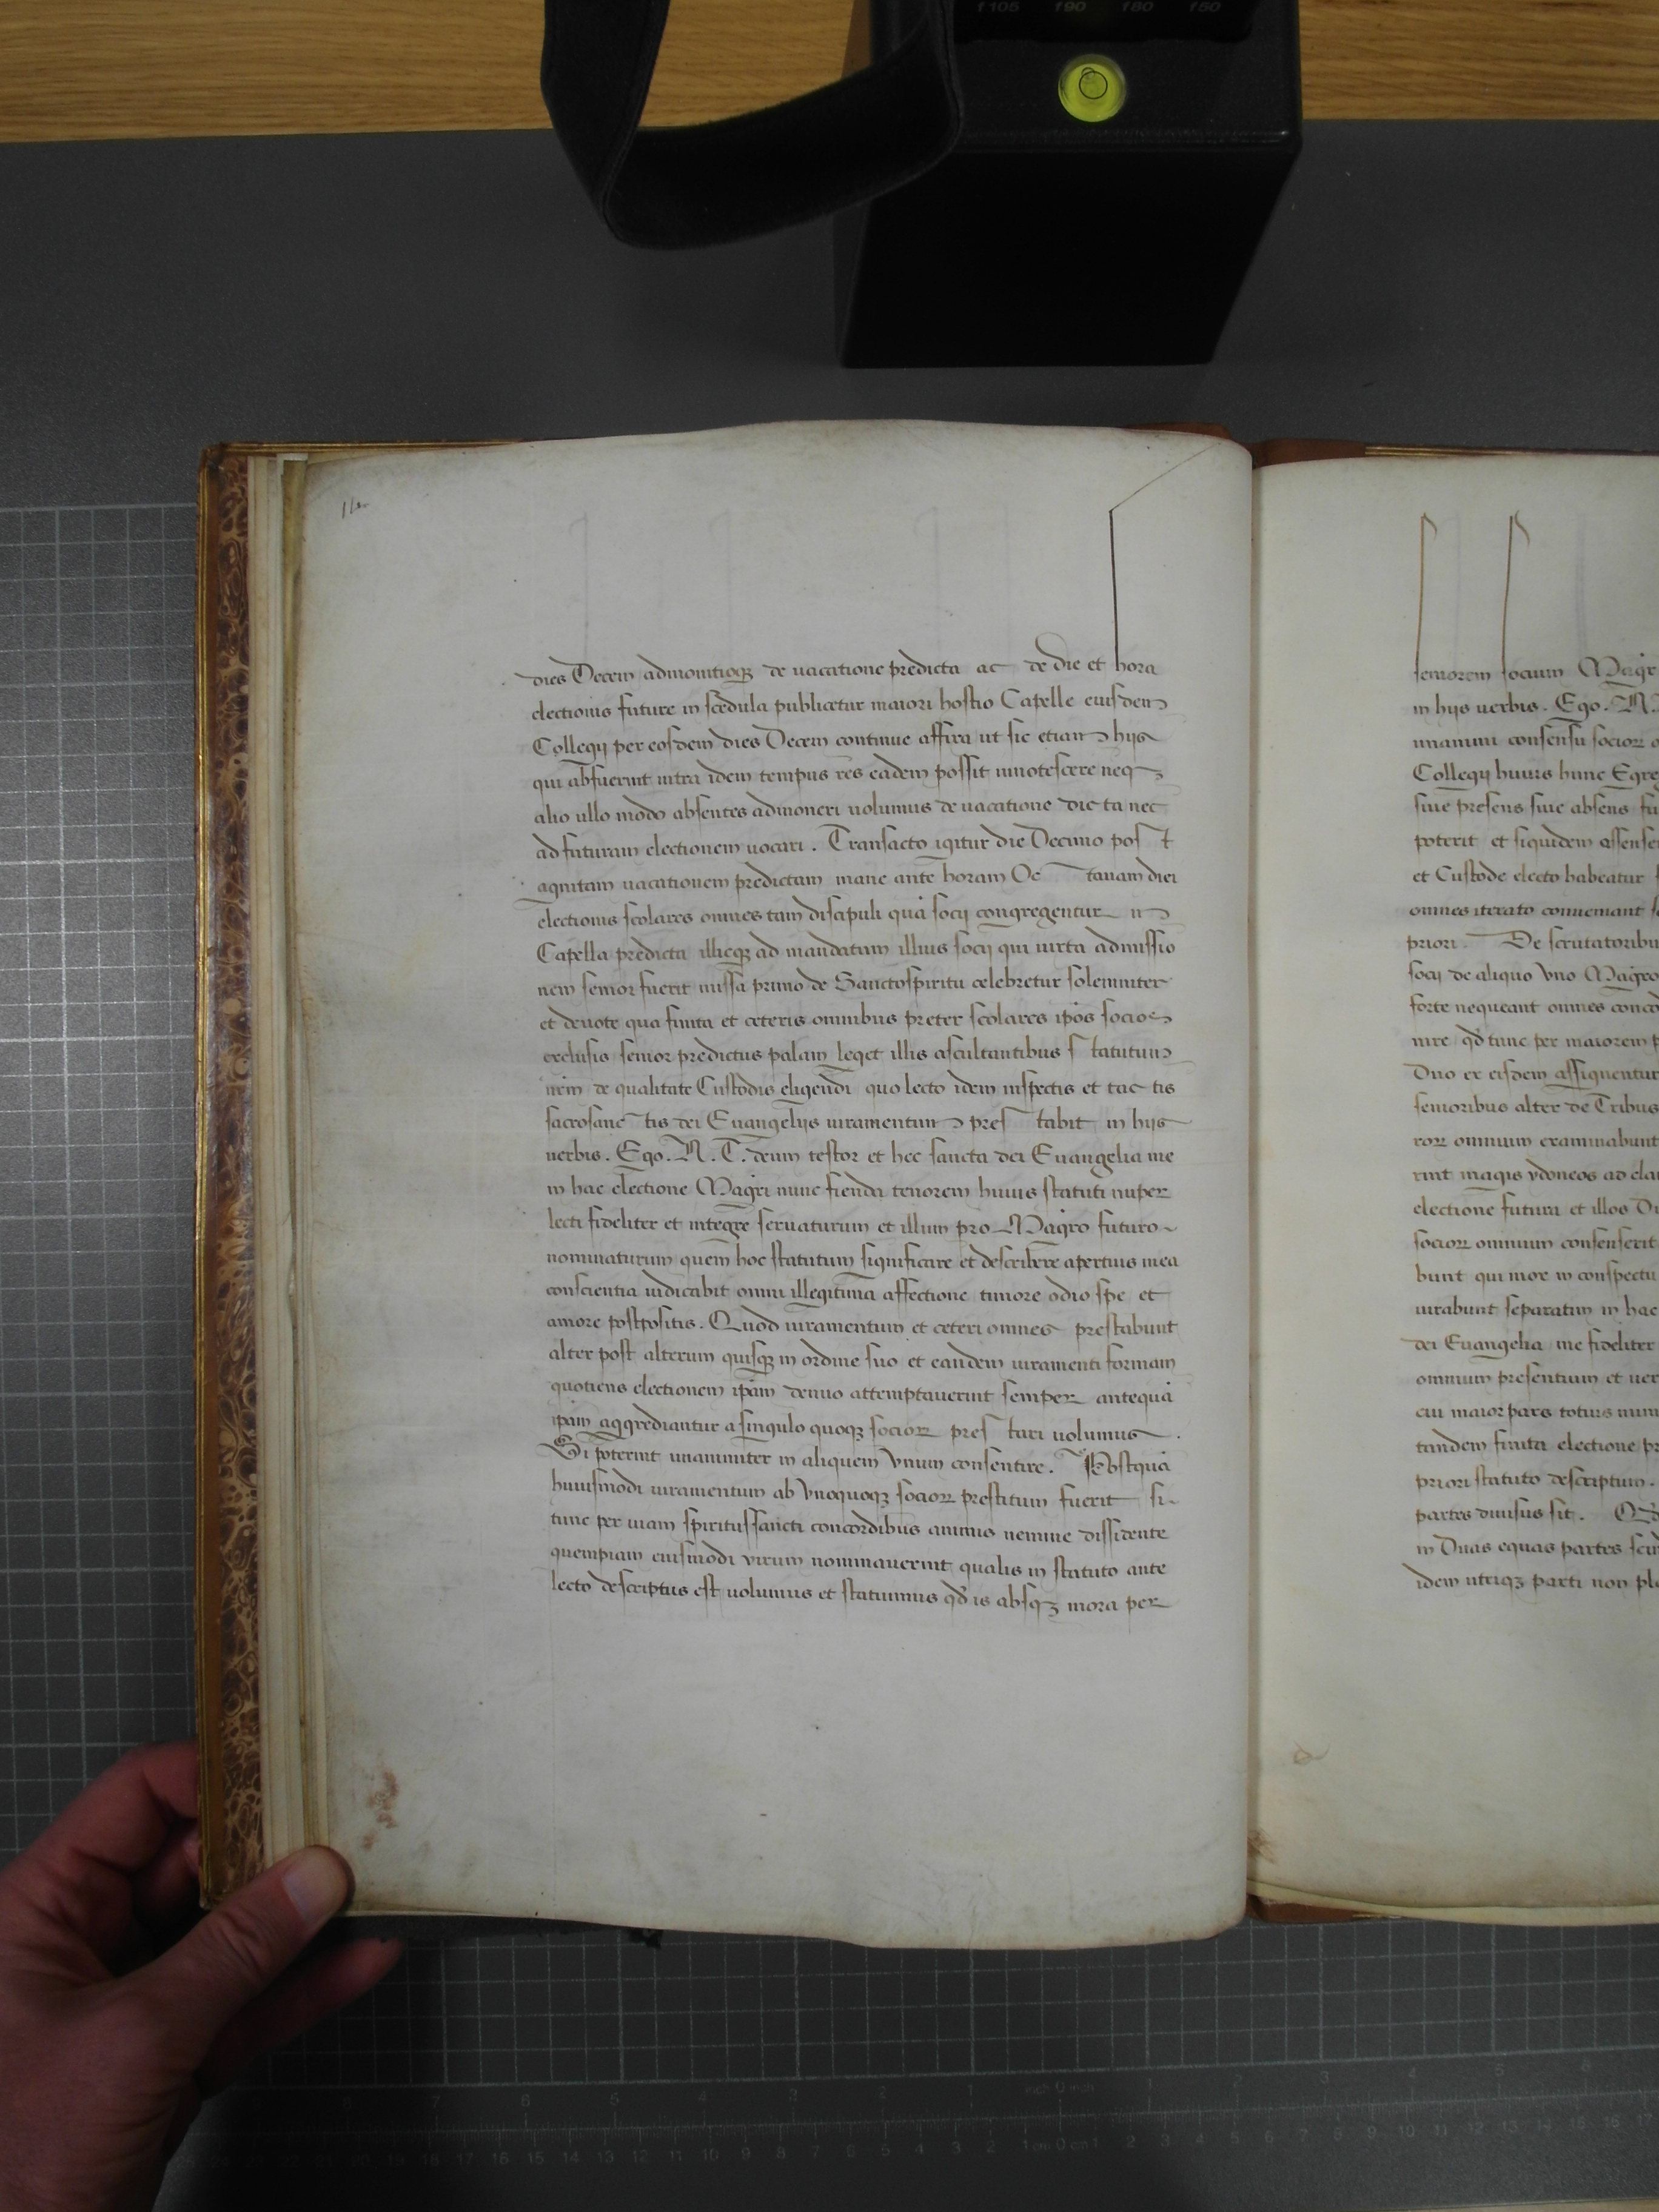 f105 f90 f80 f50
dies Decem admonitioq; de uacatione predicta ac de die et hora
electionis future in scedula publicetur maiori hostio Capelle eiusdem
Collegij per eosdem dies Decem continue affixa ut sic etiam hijs
qui abfuerint intra idem tempus res eadem possit innotescere neq;
alio ullo modo absentes admoneri uolumus de uacatione dicta nec
ad futuram electionem uocari . Transacto igitur die Decimo post
agnitam uacationem predictam mane ante horam Octauam diei
electionis scolares omnes tam discipuli quā socij congregentur in
Capella predicta illicq; ad mandatum illius socij qui iuxta admissio
nem senior fuerit missa primo de Sancto spiritu celebretur solemniter
et deuote qua finita et ceteris omnibus preter scolares ip̄os socios
exclusis senior predictus palam leget illis ascultantibus statutum
nr̄m de qualitate Custodis eligendi quo lecto idem inspectis et tactis
sacrosanctis dei Euangelijs iuramentum prestabit in hijs
uerbis . Ego . N . T . deum testor et hec sancta dei Euangelia me
in hac electione Magr̄i nunc fienda tenorem huius statuti nuper
lecti fideliter et integre seruaturum et illum pro Magr̄o futuro
nominaturum quem hoc statutum significare et describere apertius mea
conscientia iudicabit omni illegitima affectione timore odio spe et
amore postpositis . Quod iuramentum et ceteri omnes prestabunt
alter post alterum quisq; in ordine suo et eandem iuramenti formam
quotiens electionem ip̄am denuo attemptauerint semper antequā
ip̄am aggrediantur a singulo quoq; socioꝝ prestari uolumus .
Si poterint unanimiter in aliquem vnum consentire . Postquā
huiusmodi iuramentum ab vnoquoq; socioꝝ prestitum fuerit si
tunc per uiam spiritussancti concordibus animis nemine dissidente
quempiam eiusmodi virum nominauerint qualis in statuto ante
lecto descriptus est uolumus et statuimus qd̄ is absq; mora per
seniorem socium Magr
in hijs uerbis . Ego . N .
unanimi consensu socioꝝ
Collegij huius hunc Egre
siue presens siue absens fu
poterit et siquidem assense
et Custode electo habeatur
omnes iterato conueniant
priori . De scrutatoribu
socij de aliquo vno Magr̄o
forte nequeant omnes conco
nire qd̄ tunc per maiorem p
Duo ex eisdem assignentur
senioribus alter de Tribus
roꝝ omnium examinabunt
rint magis ydoneos ad
electione futura et illos Du
socioꝝ omnium consenserit
bunt qui more in conspectu
iurabunt separatim in hec
dei Euangelia me fideliter
omnium presentium et uer
cui maior pars totius num
tandem finita electione pr
priori statuto descriptum .
partes diuisus sit .
in Duas equas partes sci
idem utriq; parti non pla